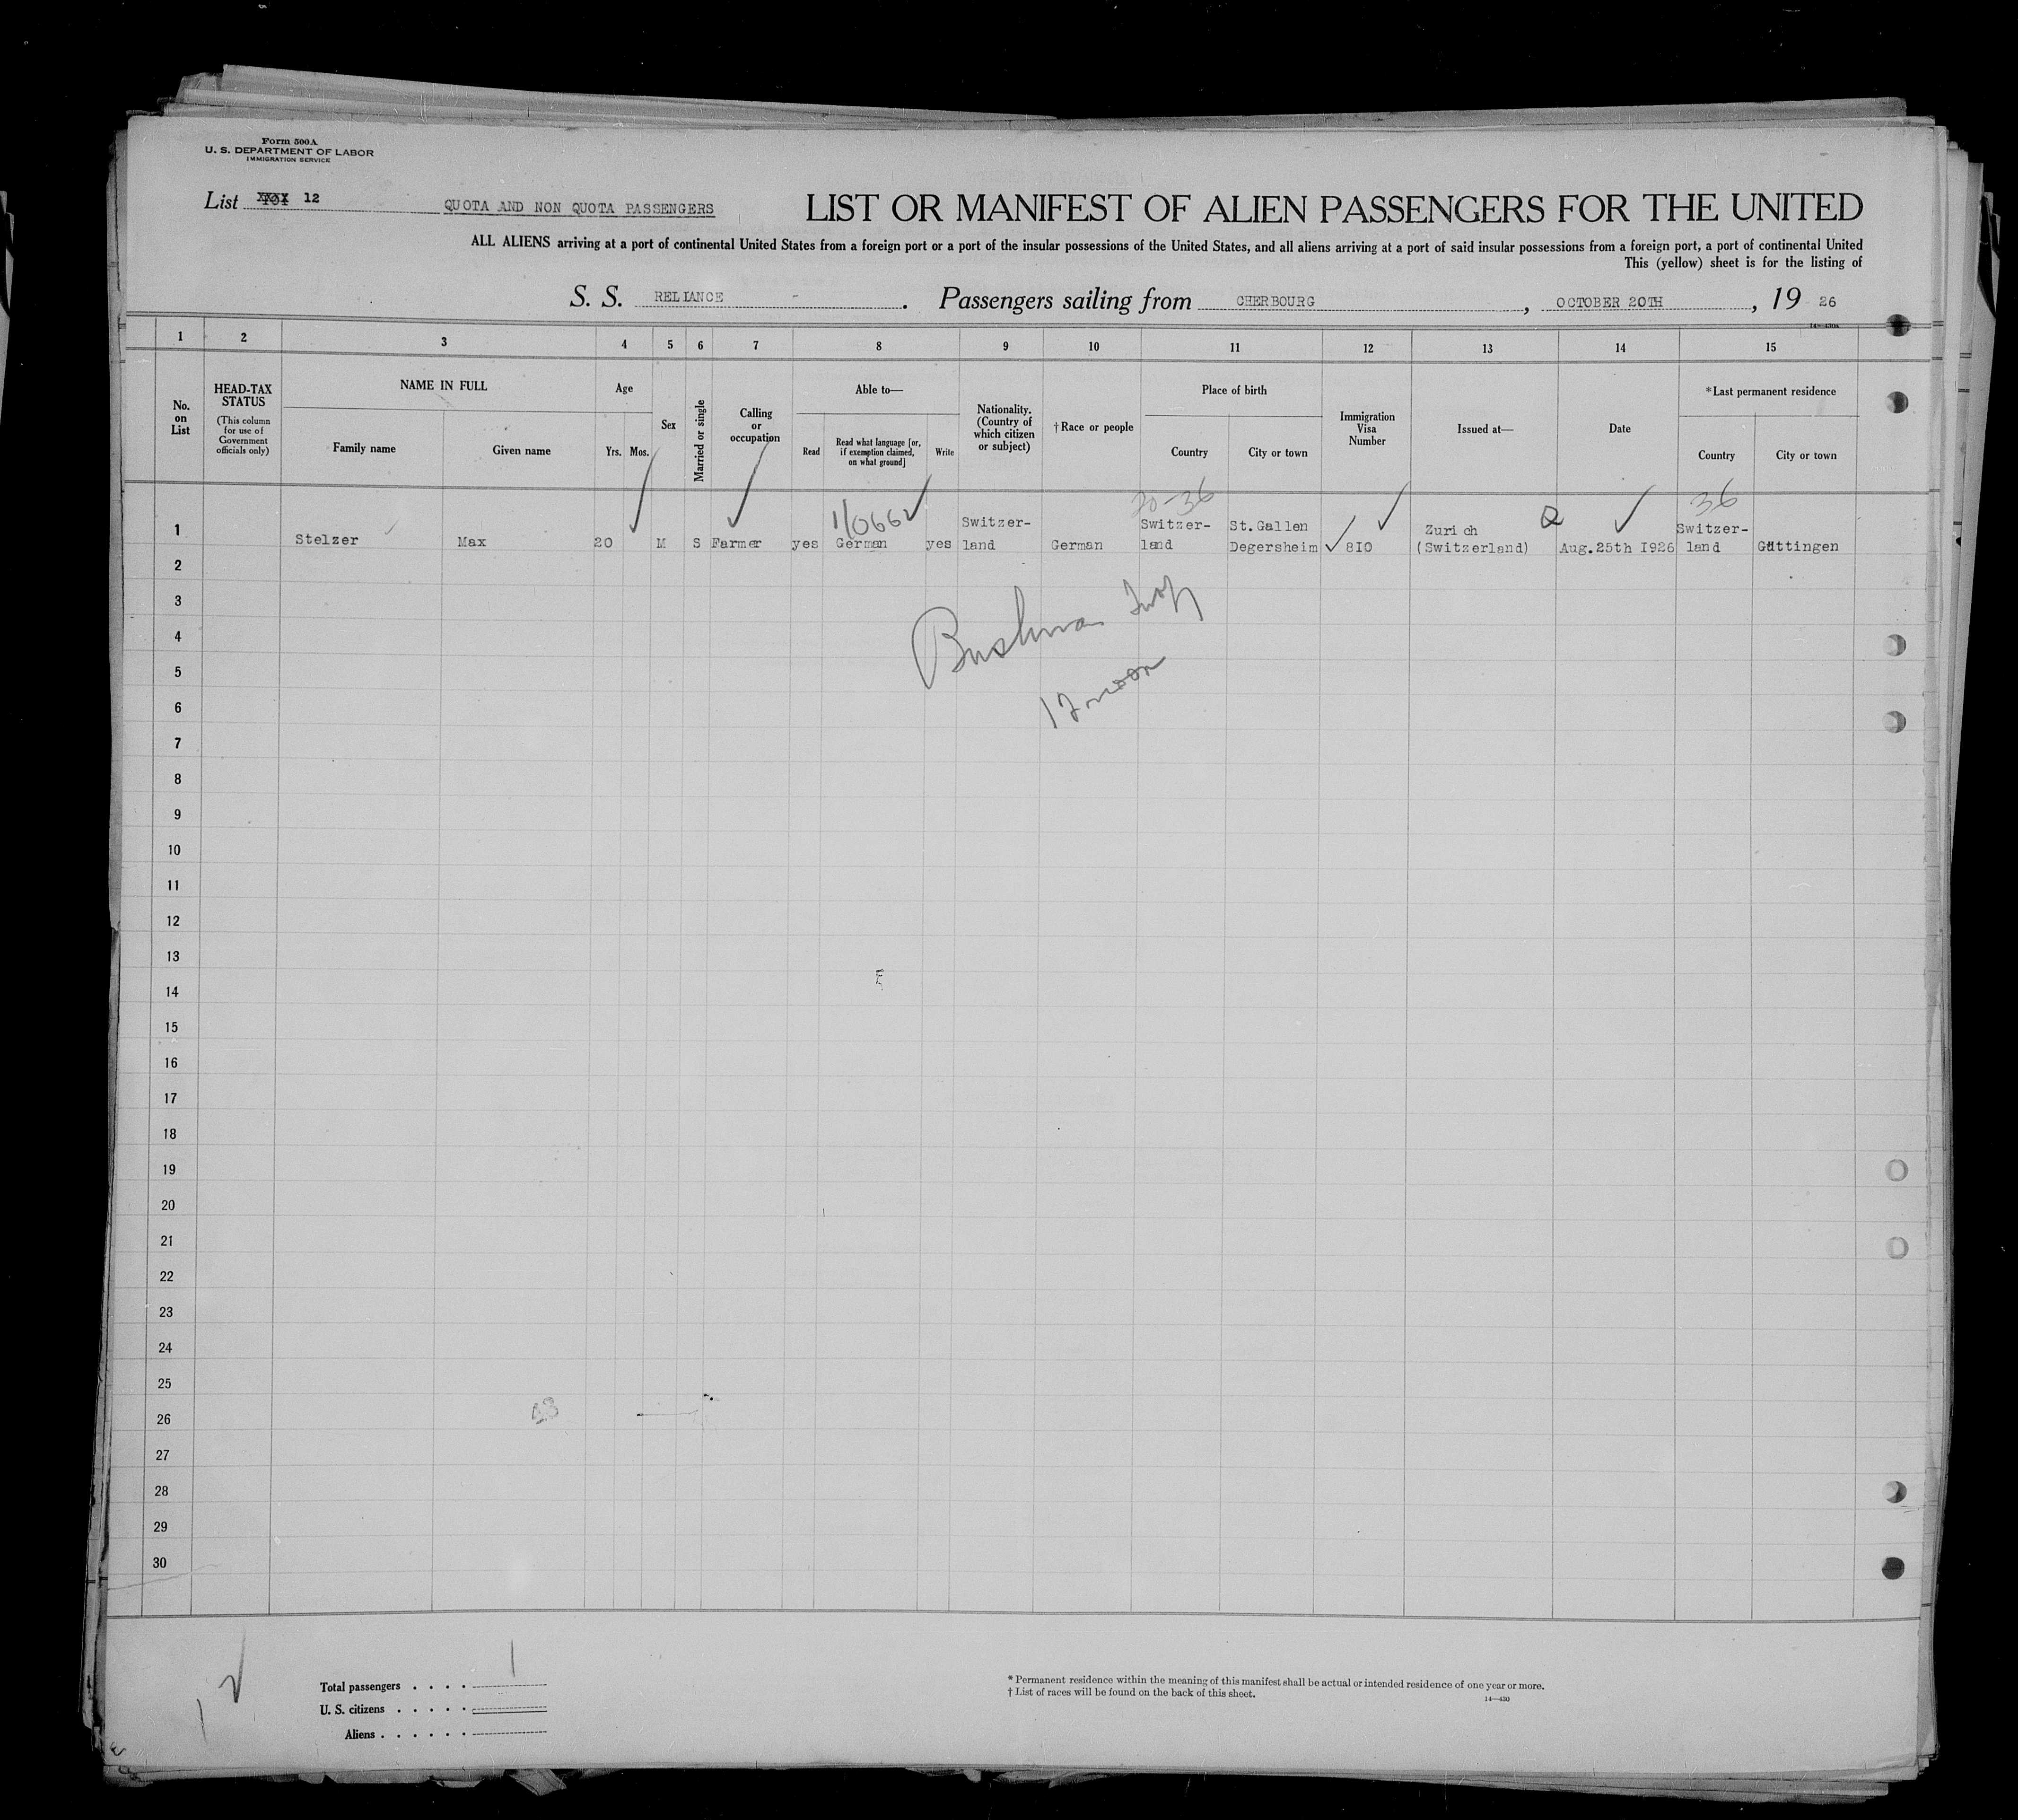 Form 500A
U. S. DEPARTMENT OF LABOR
IMMIGRATION SERVICE
List 12 QUOTA AND NON QUOTA PASSENGERS
LIST OR MANIFEST OF ALIEN PASSENGERS FOR THE UNITED
ALL ALIENS arriving at a port of continental United States from a foreign port or a port of the insular possessions of the United States, and all aliens arriving at a port of said insular possessions from a foreign port, a port of continental United
This (yellow) sheet is for the listing of
S. S. RELIANCE . Passengers sailing from CHERBOURG , OCTOBER 20TH , 19 26
14—430a
1 2 3 4 5 6 7 8 9 10 11 12 13 14 15
No. on List
HEAD-TAX STATUS
(This column for use of Government officials only)
NAME IN FULL
Family name
Given name
Age
Yrs. Mos.
Sex
Married or single
Calling or occupation
Able to—
Read
Read what language [or, if exemption claimed, on what ground]
Write
Nationality. (Country of which citizen or subject)
†Race or people
Place of birth
Country
City or town
Immigration Visa Number
Issued at—
Date
*Last permanent residence
Country
City or town
1/0662
20-36
36
1 Stelzer Max 20 M S Farmer yes German yes Switzer-land German Switzer-land St.Gallen Degersheim 8I0 Zurich (Switzerland) Aug.25th I926 Switzer-land Güttingen
2
3
Bushman
4
5
12 noon
6
7
8
9
10
11
12
13
14
15
16
17
18
19
20
21
22
23
24
25
26
27
28
29
30
Total passengers . . . . 1
U. S. citizens . . . . .
Aliens . . . . . .
* Permanent residence within the meaning of this manifest shall be actual or intended residence of one year or more.
† List of races will be found on the back of this sheet.
14—430